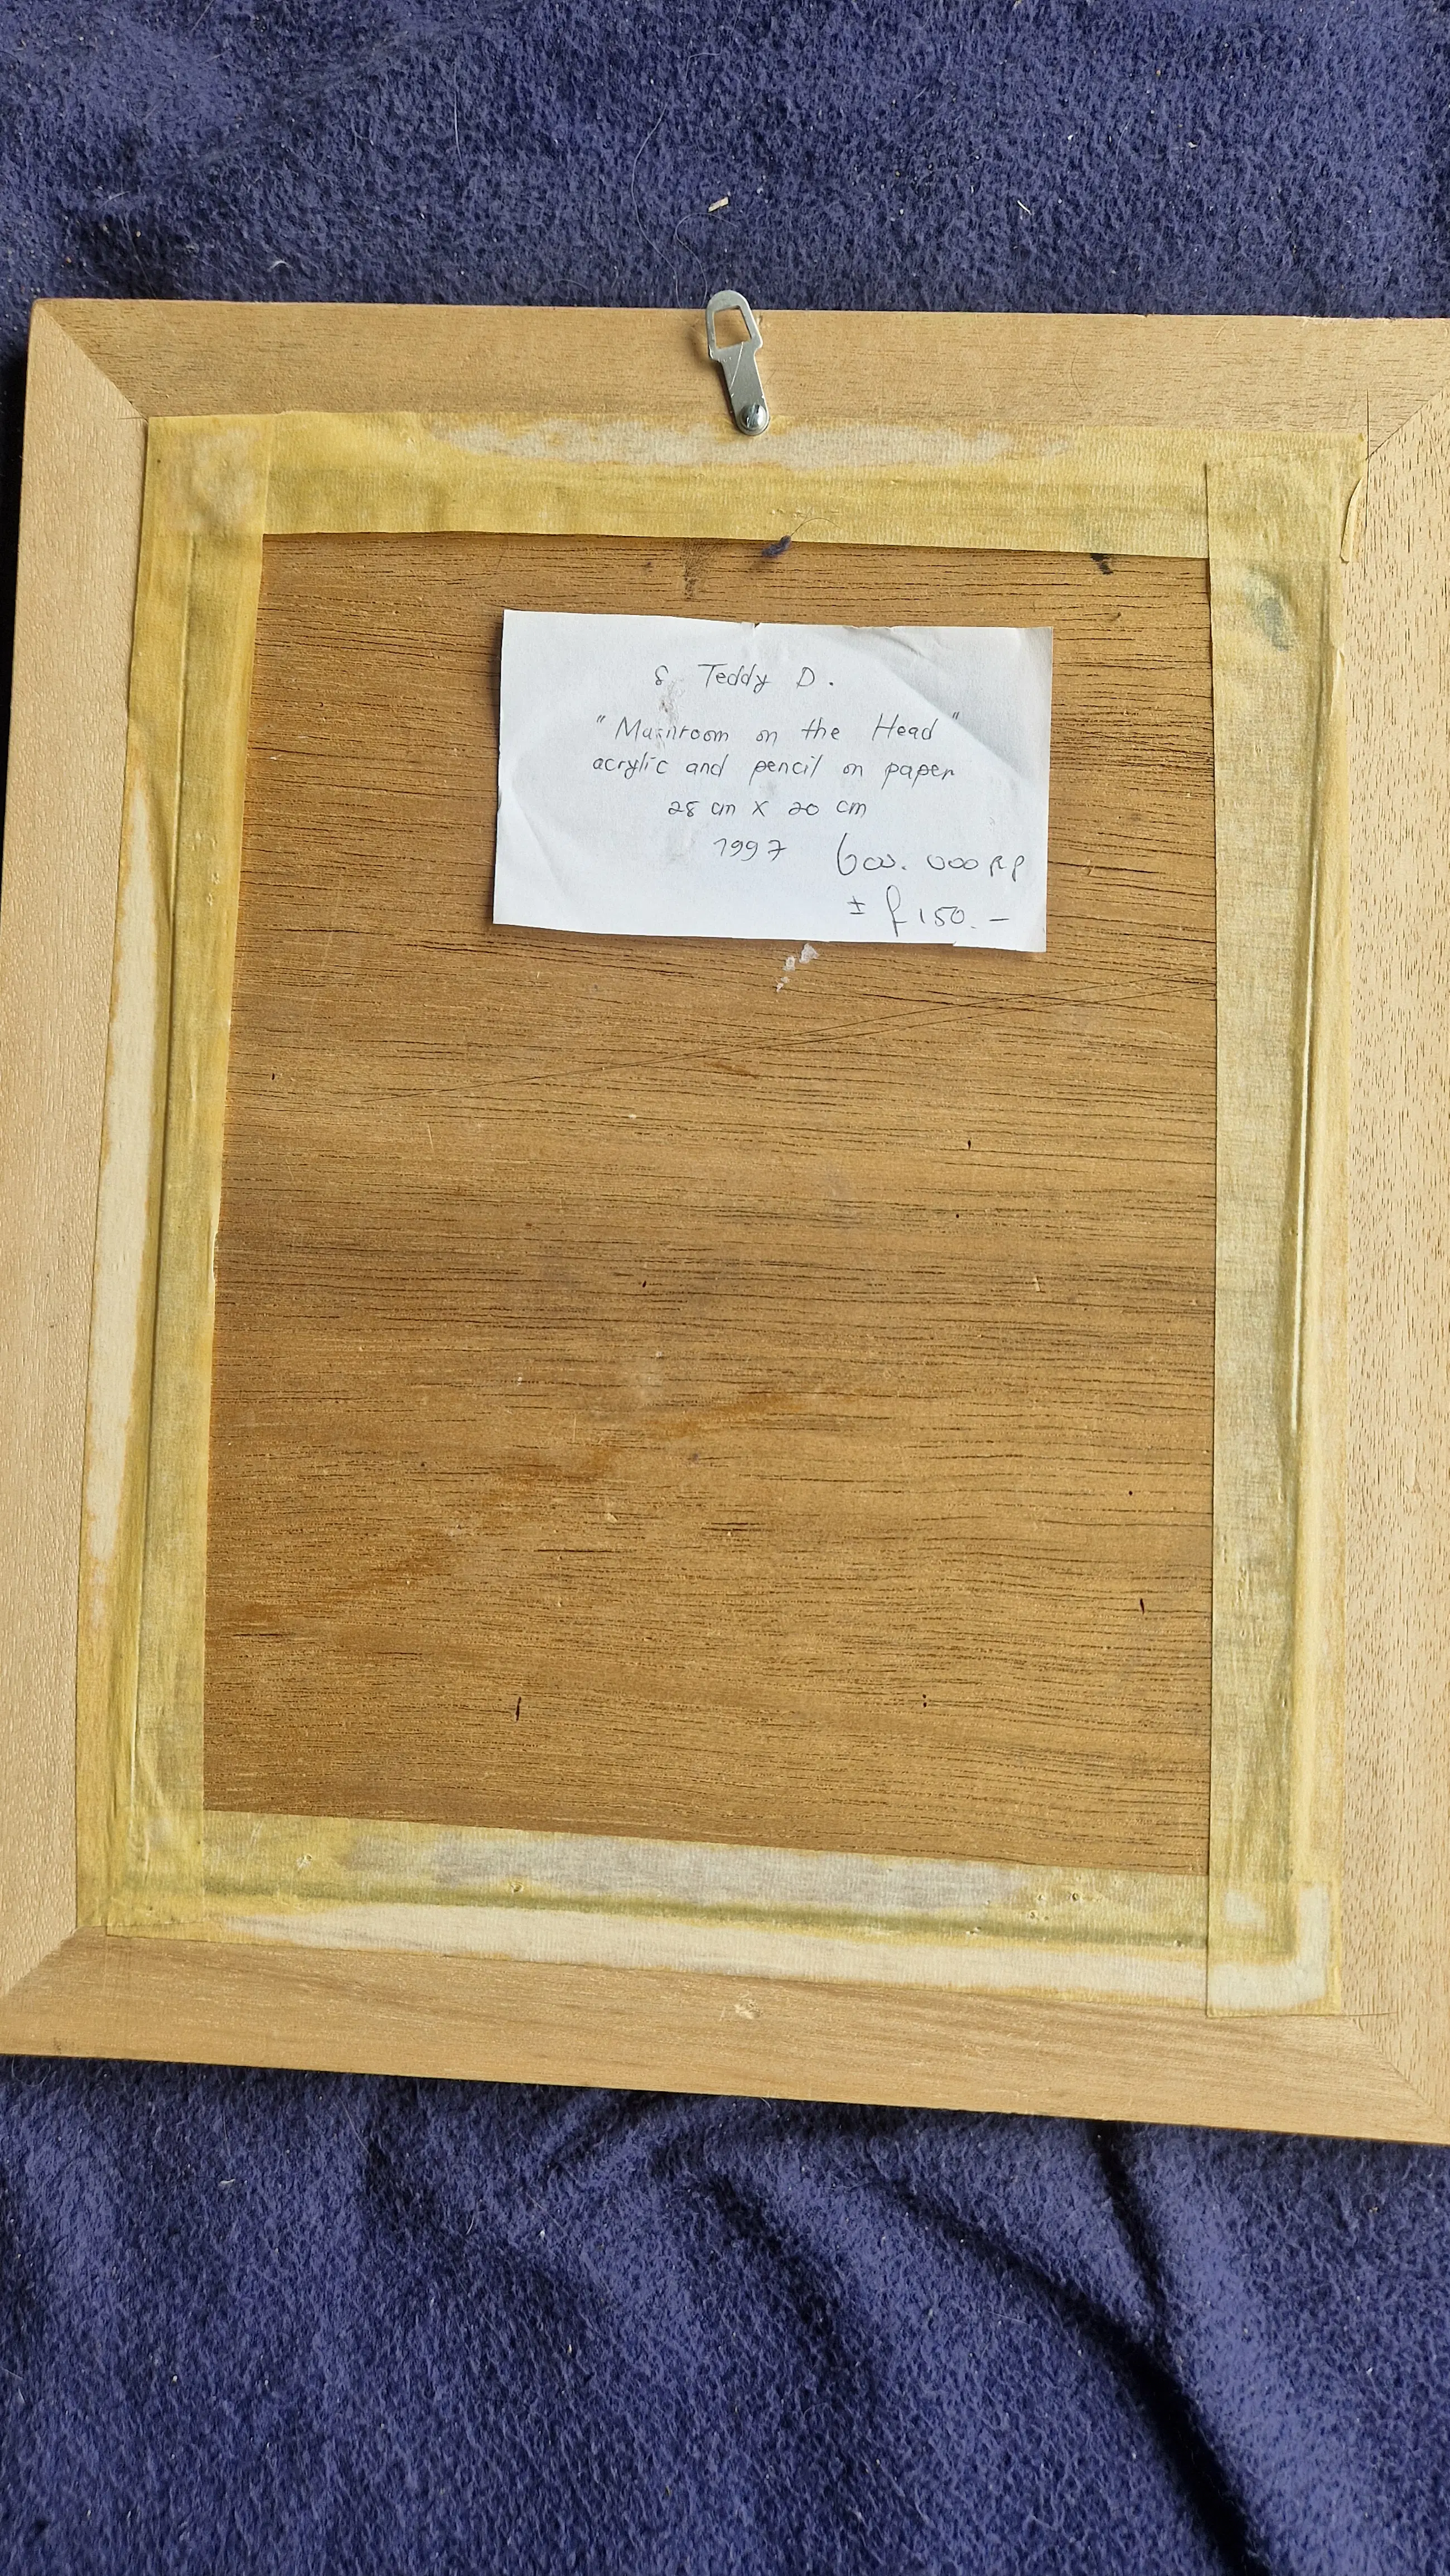 S. Teddy D.
"Mushroom on the Head"
acrylic and pencil on paper
28 cm x 20 cm
1997 600.000 RP
± ƒ 150.-